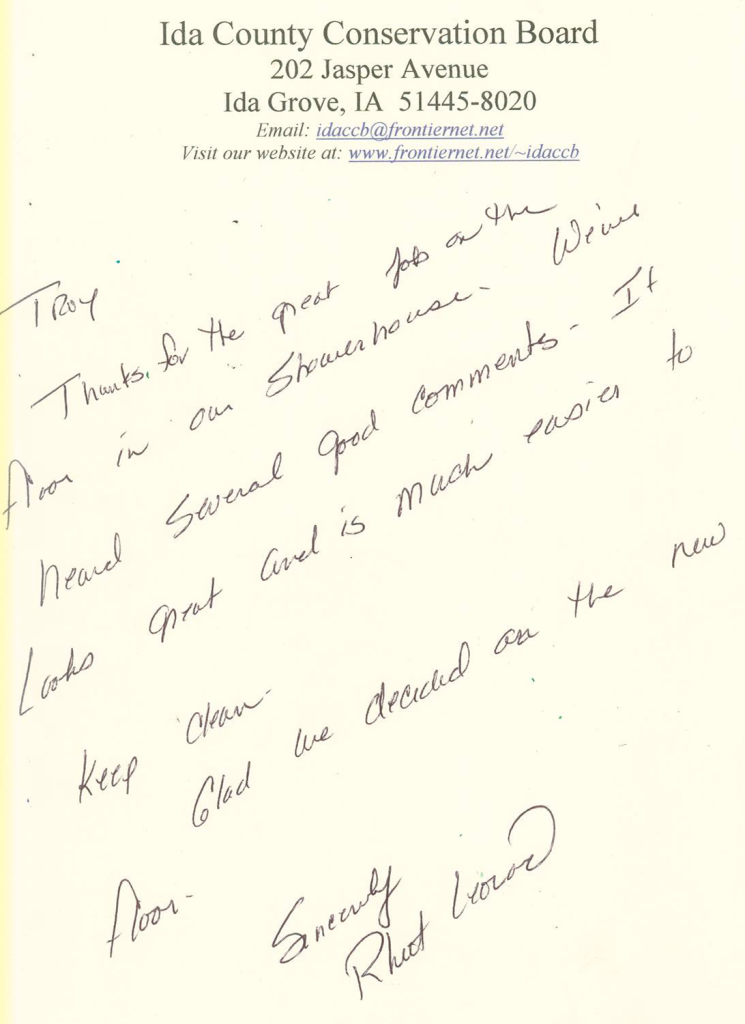 Ida County Conservation Board
202 Jasper Avenue
Ida Grove, IA 51445-8020
Email: idaccb@frontiernet.net
Visit our website at: www.frontiernet.net/~idaccb
Troy
Thanks for the great job on the
floor in our Showerhouse. We've
heard several good comments. It
Looks great and is much easier to
Keep clean.
Glad we decided on the new
floor.
Sincerely